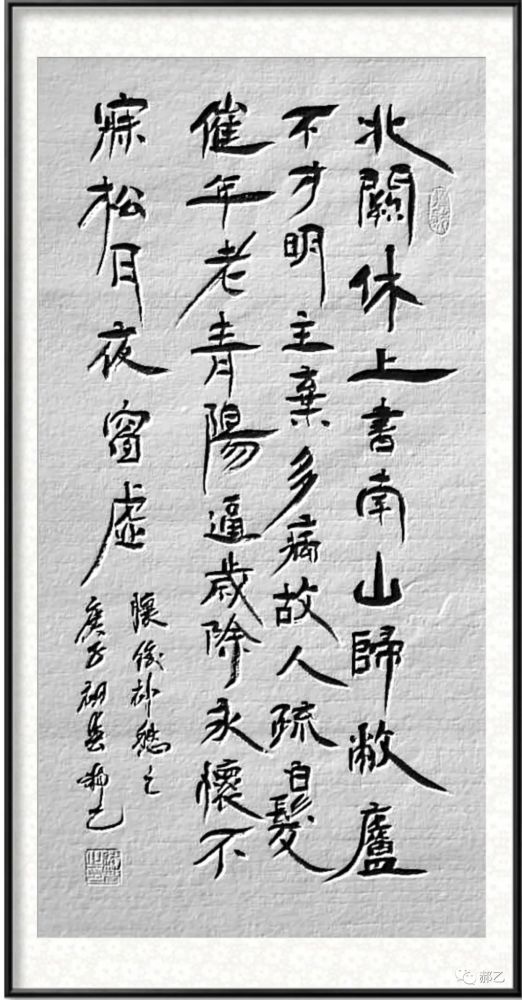 北闕休上書南山歸敝廬
不才明主棄多病故人疏白髮
催年老青陽逼歲除永懷不
寐松月夜窗虛
懷後补愁之
庚子初春郝乙
郝乙